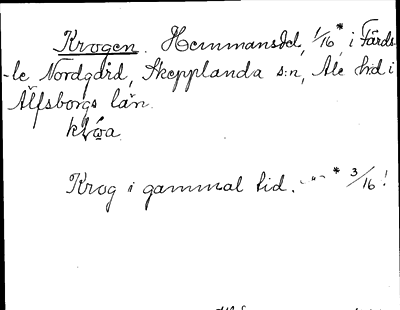 Krogen. Hemmansdel, 1/16*, i Färds-
-le Nordgård, Skepplanda s:n, Ale hd i
Älfsborgs län.
Krog i gammal tid. -"- * 3/16!